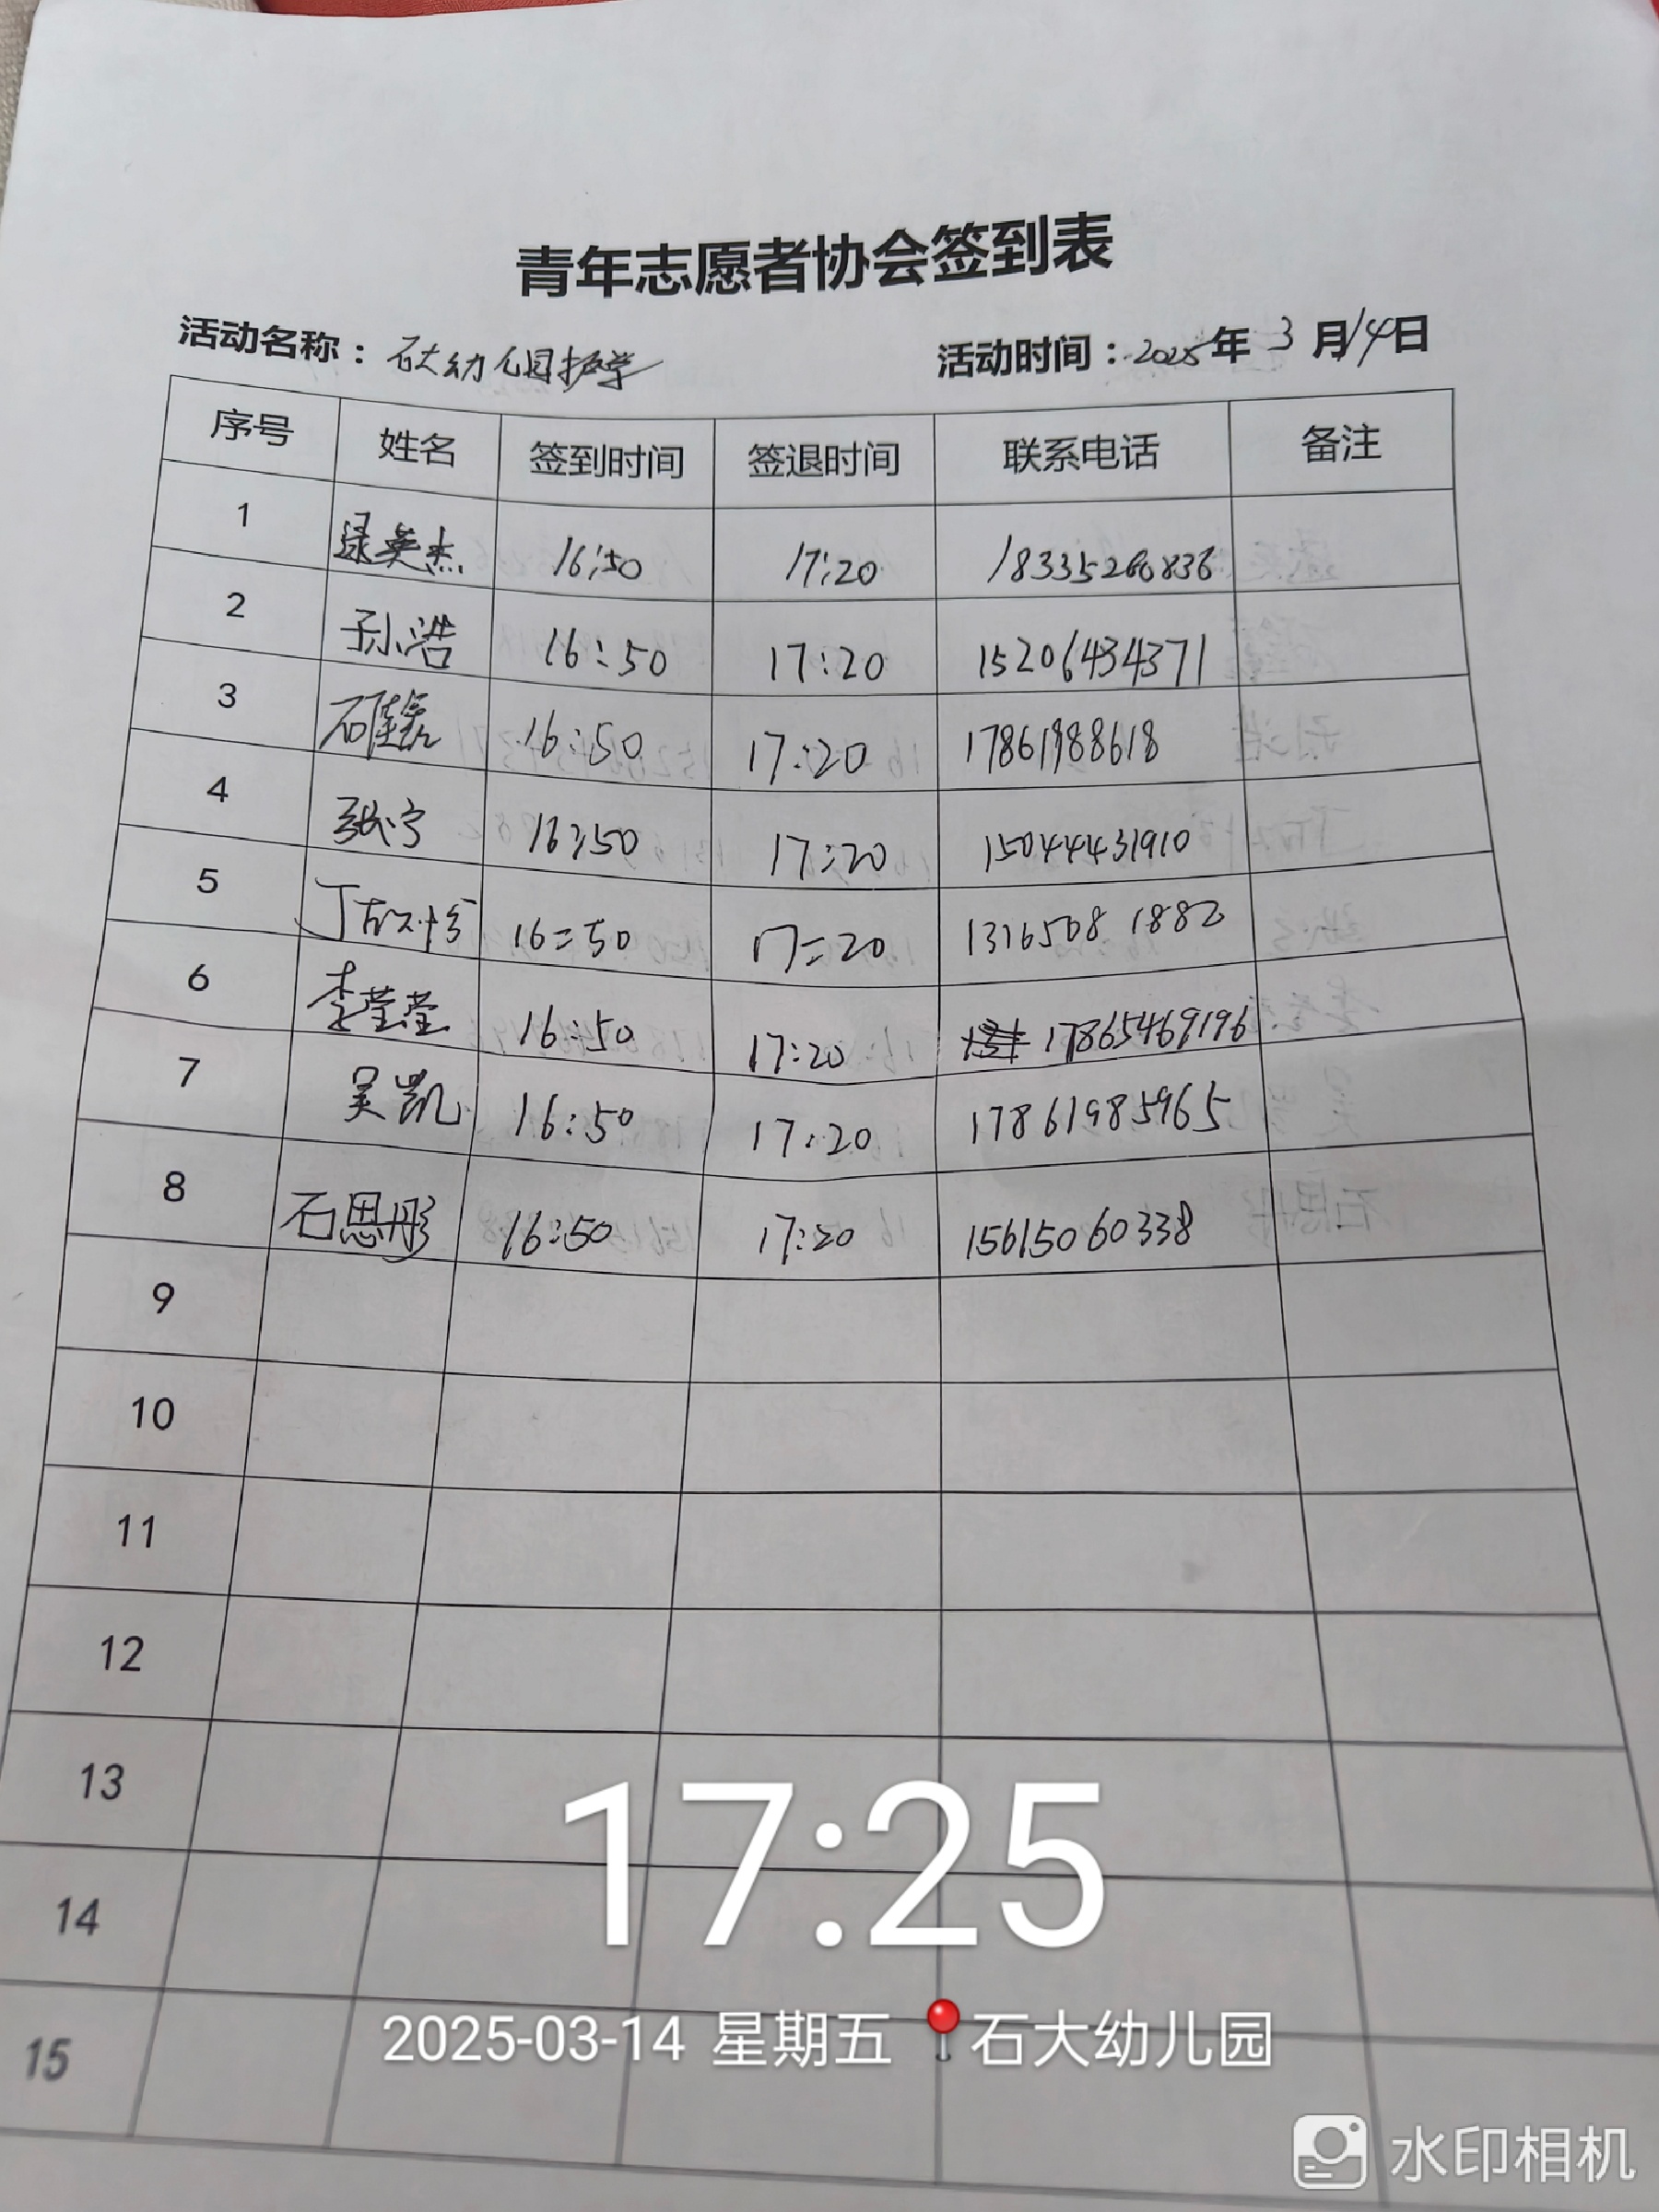 青年志愿者协会签到表
活动名称：石大幼儿园护学 活动时间：2025年3月14日
序号 姓名 签到时间 签退时间 联系电话 备注
1 英杰 16:50 17:20
2 孙浩 16:50 17:20 15206434371
3 石 16:50 17:20 17861988618
4 张宁 16:50 17:20 15044431910
5 丁 16:50 17:20 13165081882
6 李莹莹 16:50 17:20 17865469196
7 吴凯 16:50 17:20 17861985965
8 石思彤 16:50 17:20 15615060338
9
10
11
12
13
14
15
17:25
2025-03-14 星期五 石大幼儿园
水印相机